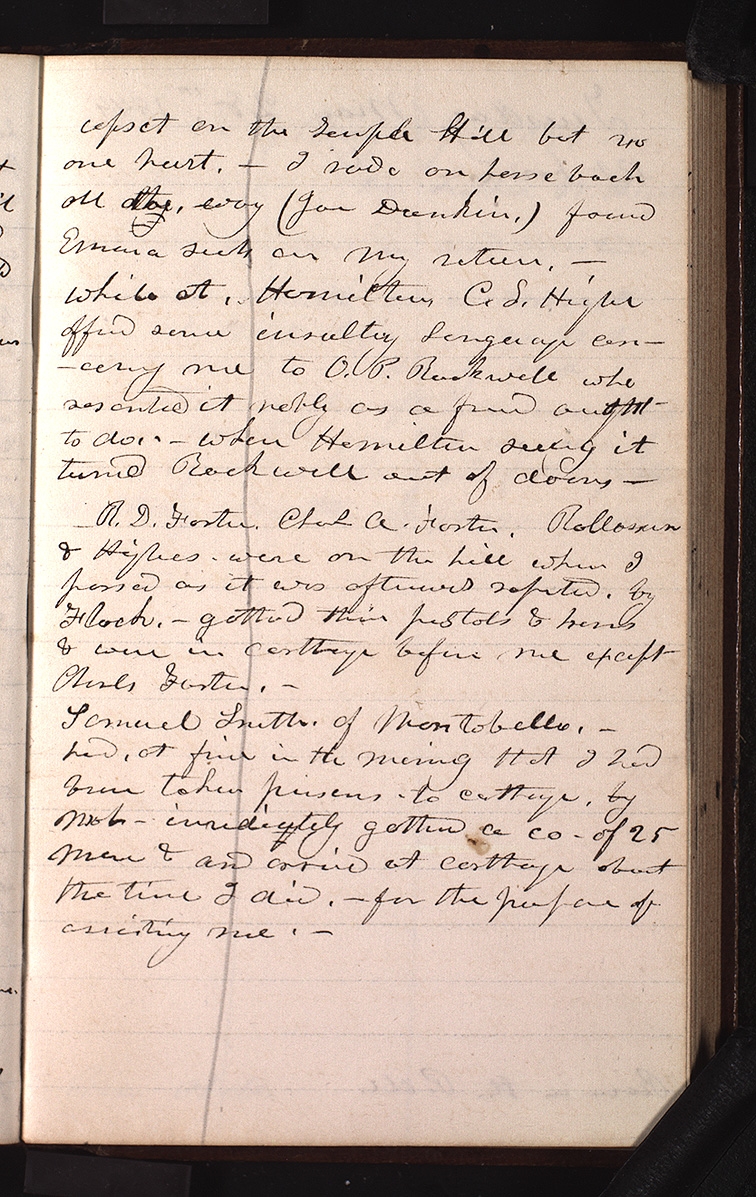 upset on the Temple Hill but no
one hurt. — I rode on horse back
all the way (Joe Duncan,) found
Emma sick on my return. —
while at Hamiltons C. L. Higbee
offred some insulting language con-
-cerng me to O. P. Rockwell who
resented it nobly as a frend aught
to do. — when Hamilton seeing it
turned Rockwell out of doors —
R. D. Foster. Chas A. Foster. Rollosson
& Higbees were on the hill when I
passed as it was afterward reported. by
Flock. — gatherd their pistols & horses
& were in carthage before me except
Charls Foster. —
Samuel Smith. of Montobello. —
had, at five in the morning that I had
been taken prisoner to carthage. by
Mob — immediately gatherd a co - of 25
Men & and arrivd at carthage about
the time I did. — for the purpose of
assisting me. —